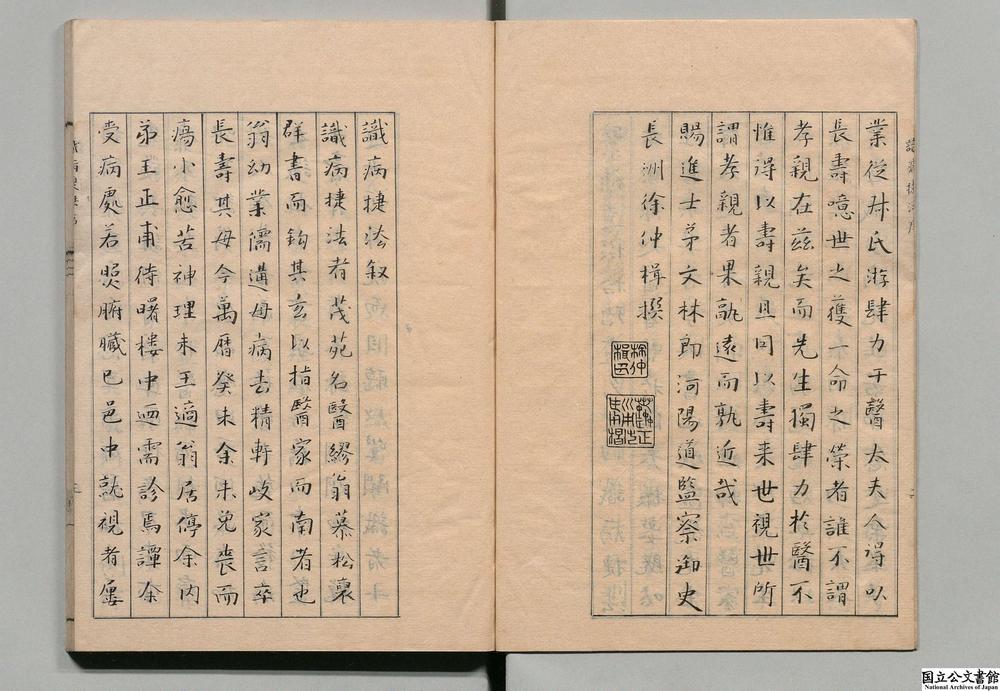 業從舛氏游肆力于醫太夫人得以
長壽噫世之獲一命之榮者誰不謂
孝親在茲矣而先生獨肆力於醫不
惟得以壽親且同以壽来世視世所
謂孝親者果孰遠而孰近哉
賜進士第文林郎河陽道監察御史
長洲徐仲楫撰
識病捷法叙
識病捷法者茂苑名醫繆翁慕松褱
群書而鈎其玄以指醫家而南者也
翁幼業儒遘母病去精軒岐家言卒
長壽其母今萬曆癸未余未免喪而
瘍小愈苦神理未王適翁居停余内
弟王正甫待曙樓中迺需診焉譚余
受病處若照腑臟已邑中就視者屢
国立公文書館
National Archives of Japan